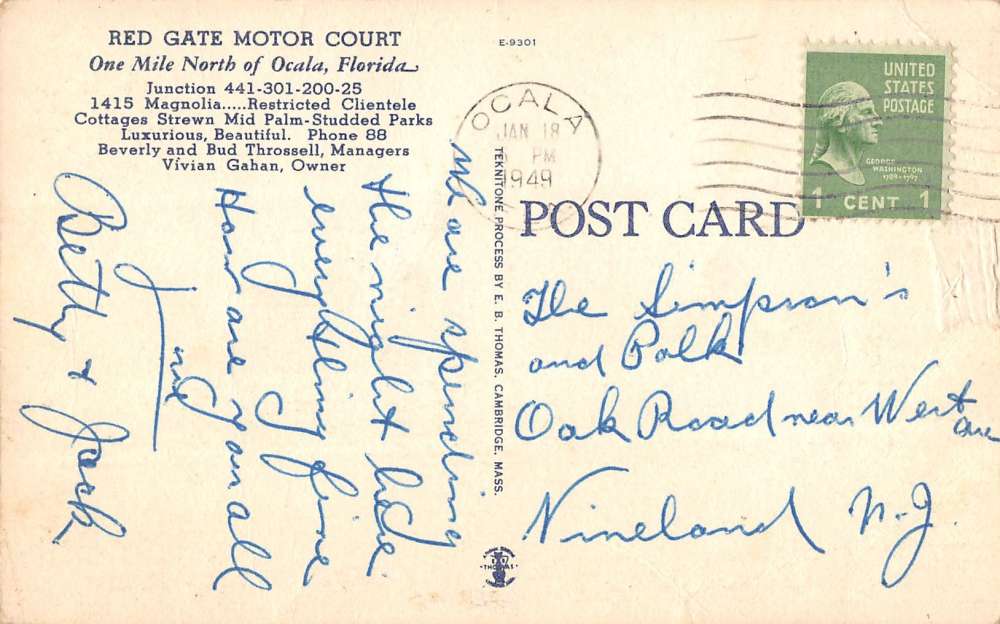 RED GATE MOTOR COURT
One Mile North of Ocala, Florida
Junction 441-301-200-25
1415 Magnolia.....Restricted Clientele
Cottages Strewn Mid Palm-Studded Parks
Luxurious, Beautiful. Phone 88
Beverly and Bud Throssell, Managers
Vivian Gahan, Owner
We are spending
the night here
everything fine
How are you all
Betty & Jack
E-9301
TEKNITONE PROCESS BY E. B. THOMAS, CAMBRIDGE, MASS.
THOMAS
OCALA
JAN 18
PM
1949
UNITED
STATES
POSTAGE
GEORGE
WASHINGTON
1789-1797
1 CENT 1
POST CARD
The Simpson's
and Polk
Oak Road near West
ave
Vineland N.J.